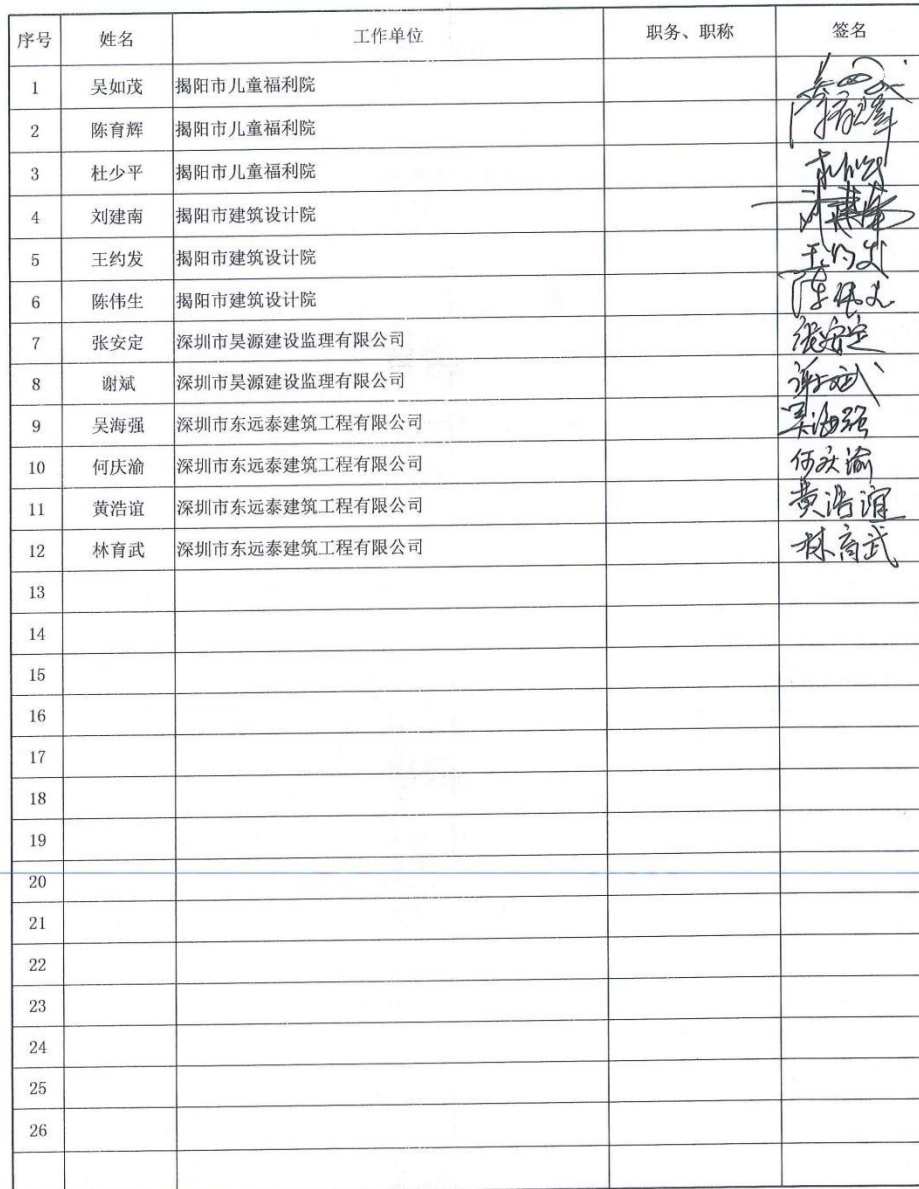 序号 姓名 工作单位 职务、职称 签名
1 吴如茂 揭阳市儿童福利院
2 陈育辉 揭阳市儿童福利院
3 杜少平 揭阳市儿童福利院
4 刘建南 揭阳市建筑设计院
5 王约发 揭阳市建筑设计院 王约发
6 陈伟生 揭阳市建筑设计院
7 张安定 深圳市昊源建设监理有限公司 张安定
8 谢斌 深圳市昊源建设监理有限公司 谢斌
9 吴海强 深圳市东远泰建筑工程有限公司 吴海强
10 何庆渝 深圳市东远泰建筑工程有限公司 何庆渝
11 黄浩谊 深圳市东远泰建筑工程有限公司 黄浩谊
12 林育武 深圳市东远泰建筑工程有限公司 林育武
13
14
15
16
17
18
19
20
21
22
23
24
25
26